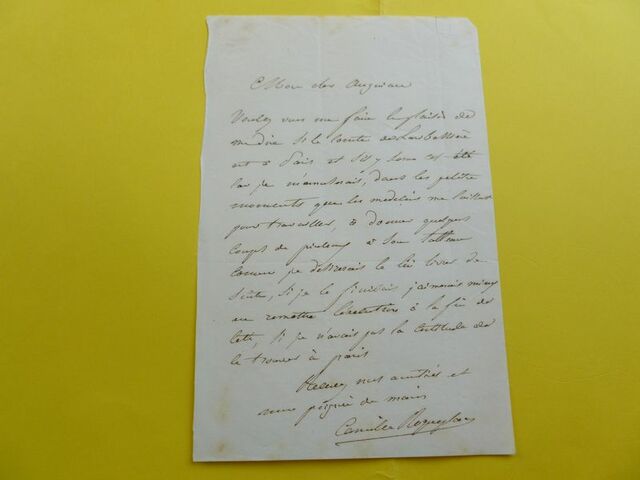 Mon cher
Voulez vous me faire le plaisir de
me dire si le comte de
est à Paris et s'il y sera cet été
car je m'amuserais, dans les petits
moments que les médecins me laissent
pour travailler, à donner quelques
coups de pinceau à son tableau
comme je désirerais le lui livrer de
suite, si je le finissais j'aimerais mieux
en remettre à la fin de
l'été, si je n'avais pas la certitude de
le trouver à paris
Recevez mes amitiés et
une poignée de mains
Camille Roqueplan